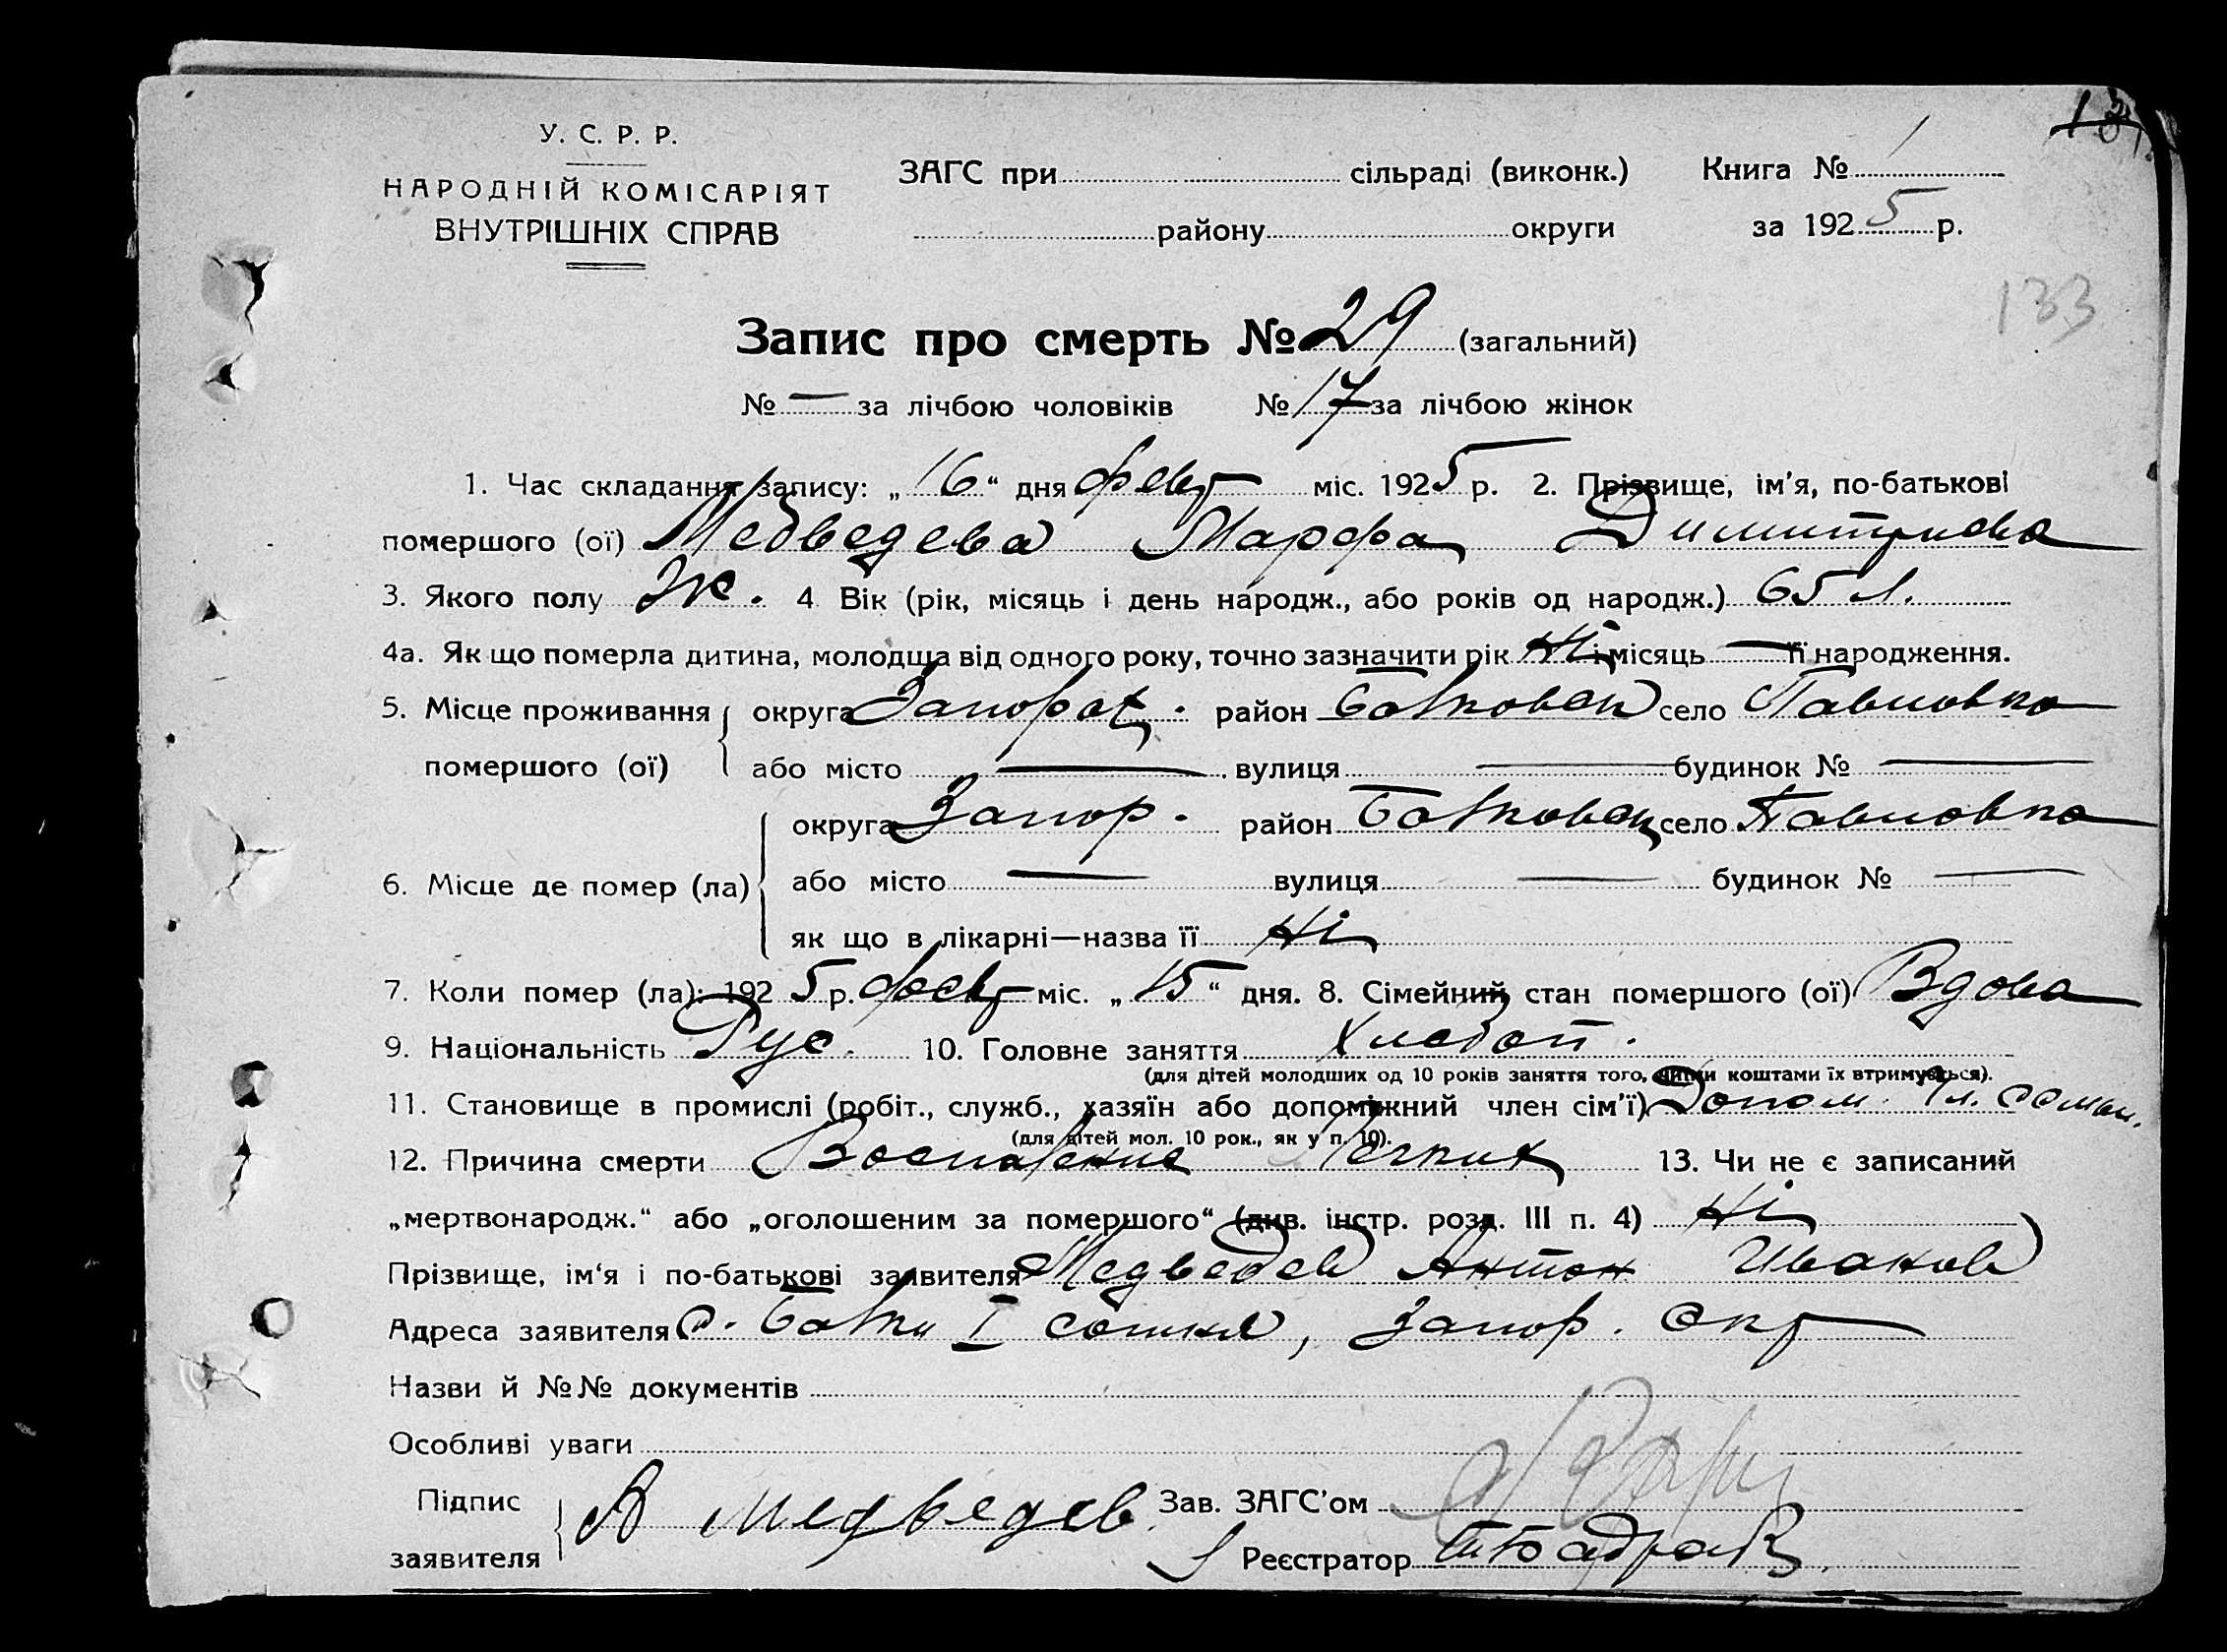 133
У. С. Р. Р.
НАРОДНІЙ КОМІСАРІЯТ
ВНУТРІШНІХ СПРАВ
ЗАГС при сільраді (виконк.) Книга № 1
району округи за 1925 р.
Запис про смерть № 29 (загальний)
№ — за лічбою чоловіків № 17 за лічбою жінок
1. Час складання запису: „16“ дня февр міс. 1925 р. 2. Прізвище, ім'я, по-батькові
помершого (ої) Медведева Марфа Димитриева
3. Якого полу Ж. 4 Вік (рік, місяць і день народж., або років од народж.) 65 л.
4а. Як що померла дитина, молодща від одного року, точно зазначити рік ні і місяць — її народження.
5. Місце проживання округа район село Павловка
помершого (ої) або місто — вулиця — будинок № —
округа Запор. район село Павловка
6. Місце де помер (ла) або місто — вулиця — будинок № —
як що в лікарні—назва її ні
7. Коли помер (ла): 1925 р. февр міс. „15“ дня. 8. Сімейний стан помершого (ої) Вдова
9. Національність Рус. 10. Головне заняття Хлебоп.
(для дітей молодших од 10 років заняття того, чиїми коштами їх втримується).
11. Становище в промислі (робіт., служб., хазяїн або допоміжний член сім'ї) Допом. чл. семьи.
(для дітей мол. 10 рок., як у п. 10).
12. Причина смерти Воспаление Легких 13. Чи не є записаний
„мертвонародж.“ або „оголошеним за помершого“ (див. інстр. розд. III п. 4) ні
Прізвище, ім'я і по-батькові заявителя Медведев Антон Иванов
Адреса заявителя с. Балки I сотня, Запор. окр
Назви й №№ документів
Особливі уваги
Підпис А Медведев Зав. ЗАГС'ом
заявителя Реєстратор